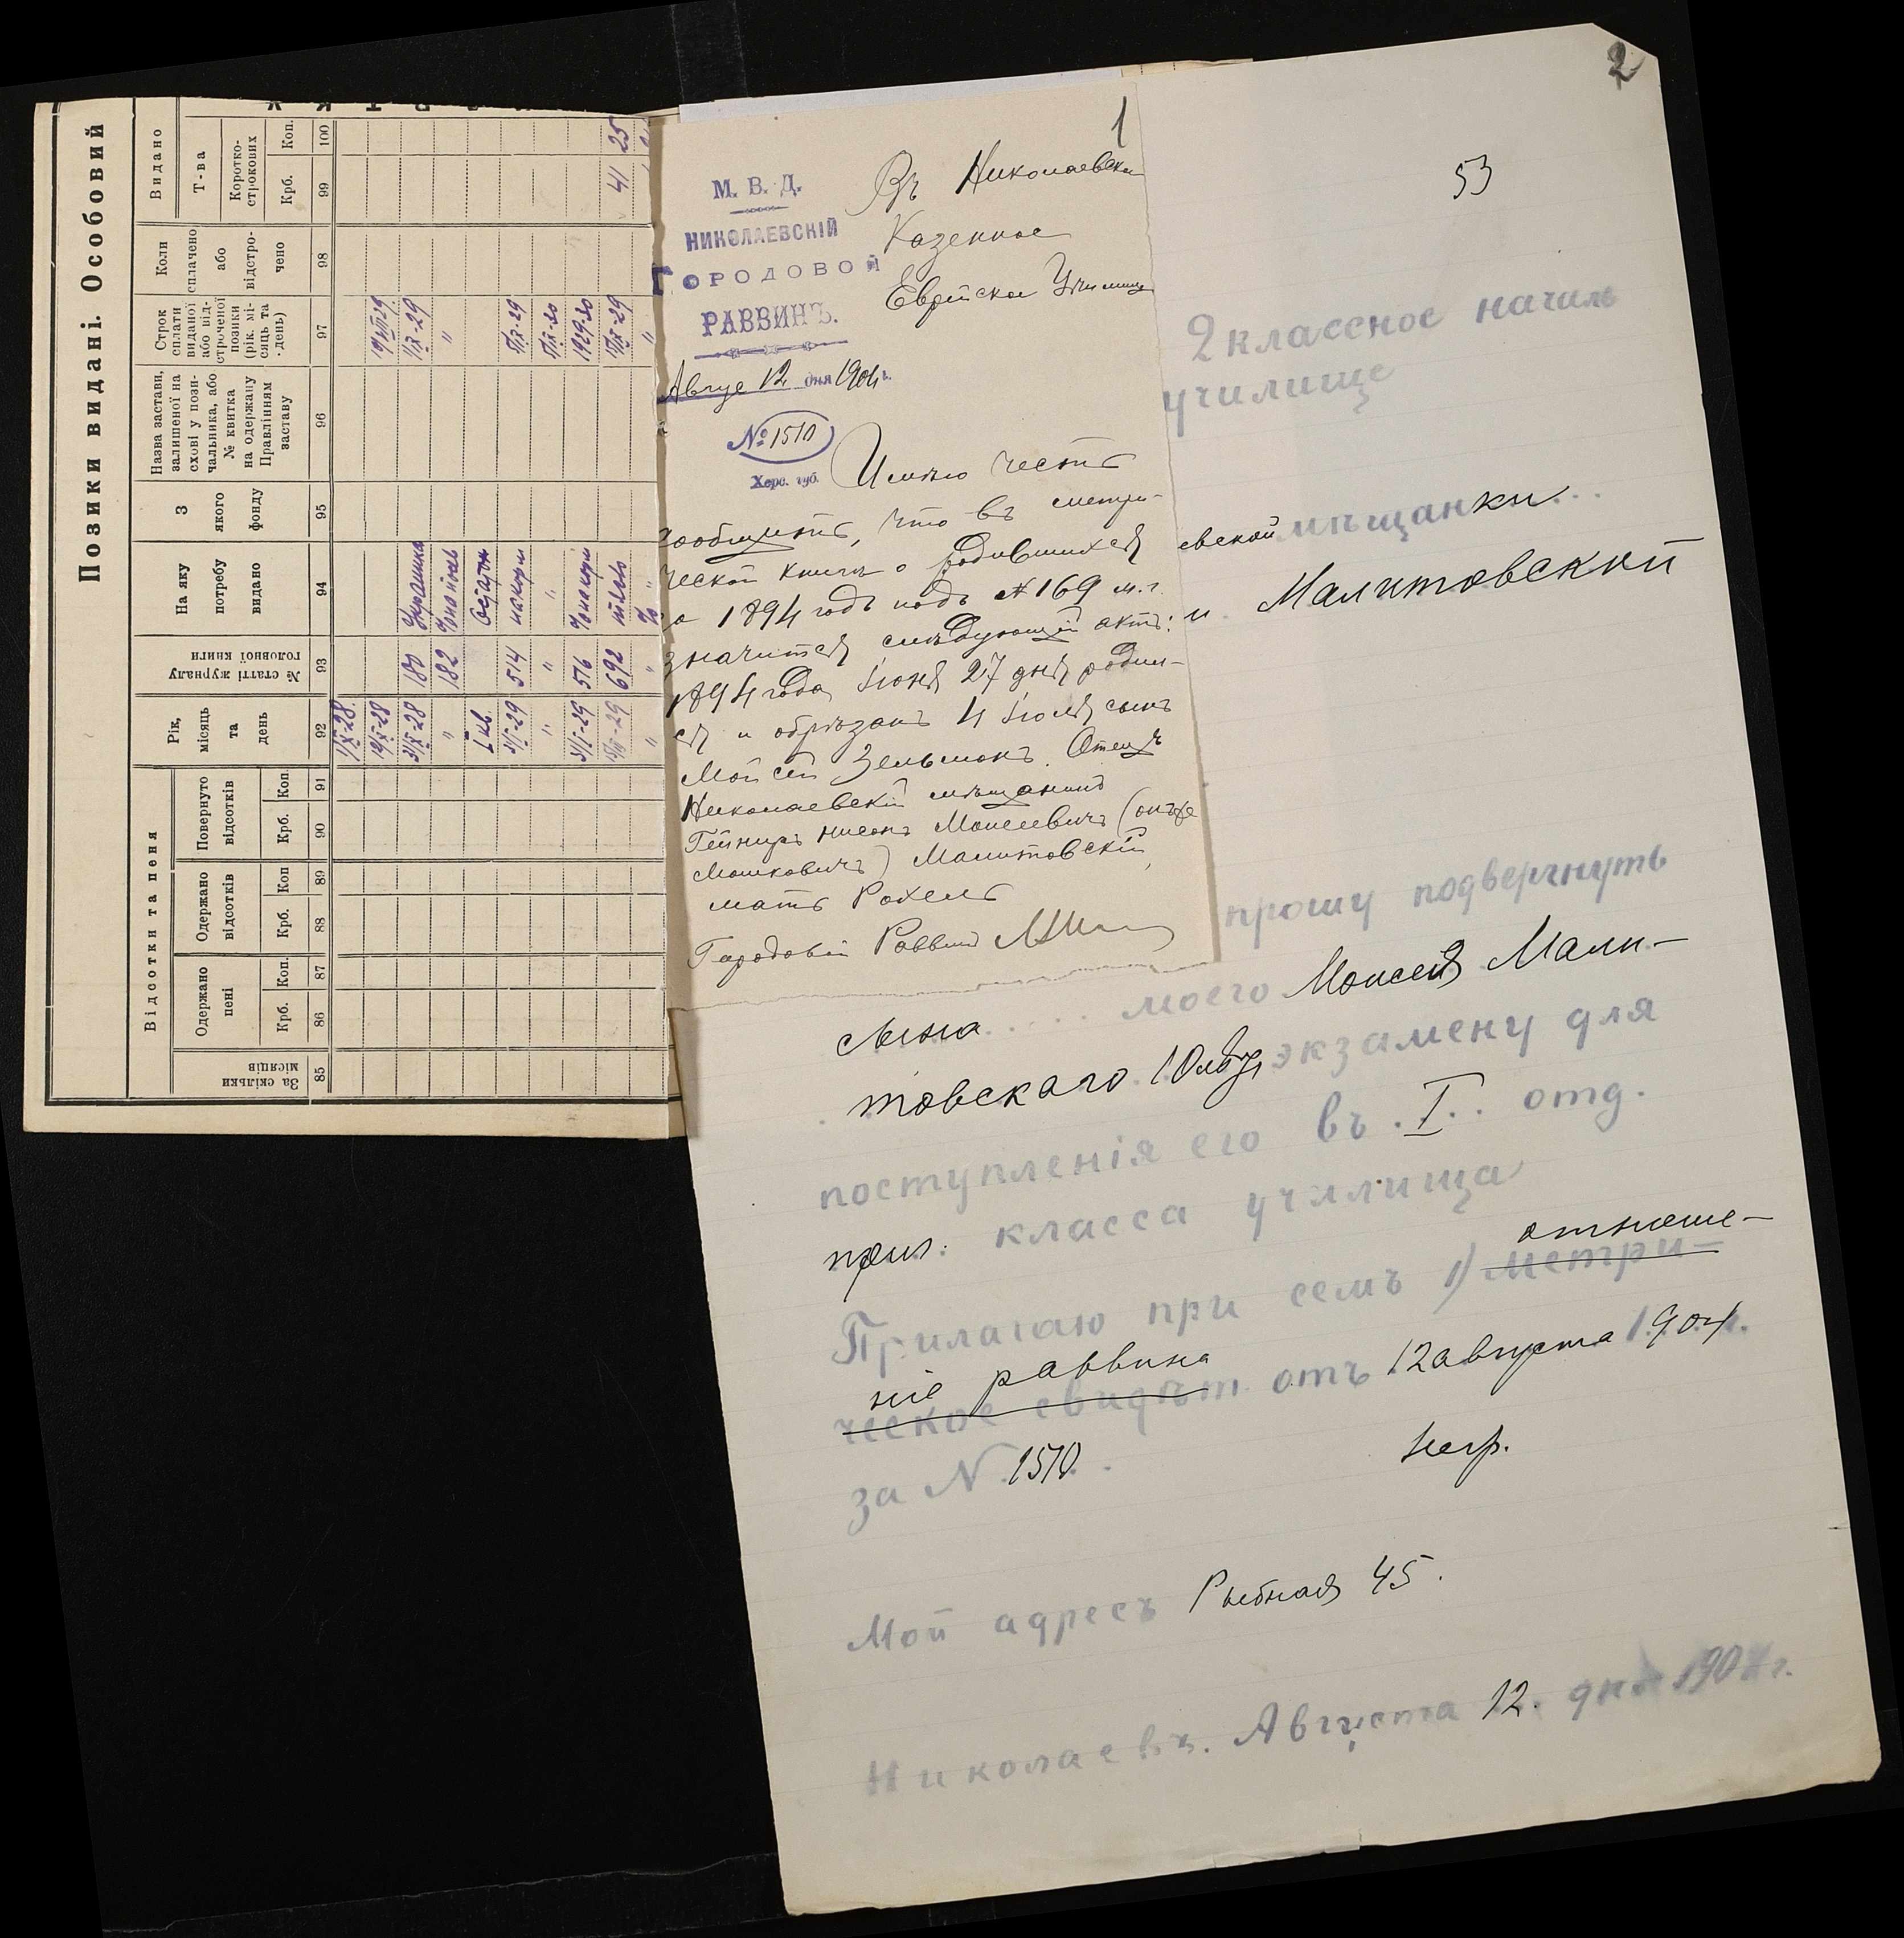 Позики видані. Особовий
Відсотки та пеня
Видано
За скільки місяців
Одержано пені
Одержано відсотків
Повернуто відсотків
Рік, місяць та день
№ статті журналу головної книги
На яку потребу видано
З якого фонду
Назва застави, залишеної на схові у пози-чальника, або № квитка на одержану Правлінням заставу
Строк сплати виданої або від-строченої позики (рік. мі-сяць та день)
Коли сплачено або відстро-чено
Т-ва
Коротко-строкових
Крб. Коп. Крб. Коп Крб. Коп. Крб. Коп.
85 86 87 88 89 90 91 92 93 94 95 96 97 98 99 100
180
182
514 "
576
692
41 25
1929-30
1
М. В. Д.
НИКОЛАЕВСКІЙ
ГОРОДОВОЙ
РАВВИНЪ.
Авгус 12 дня 1904 г.
№ 1510
Херс. губ.
Въ Николаевско
Казенное
Еврейское Училище
Имѣю честь
сообщить, что въ метри-
ческой книгѣ о родившихся
за 1894 годъ подъ № 169 м. г.
значится слѣдующій актъ:
1894 года Іюня 27 дня родил-
ся и обрѣзанъ 4 Іюля сынъ
Мойсей Зельманъ. Отецъ
Николаевскій мѣщанинъ
Нисонъ Моисеевичъ (онъ же
Мошковичъ) Малитовскій,
мать Рохель
Городовой Раввин
2
53
2 классное началь
училище
евской мѣщанки
и Малитовской
прошу подвергнуть
сына моего Моисея Мали-
товскаго 10 лѣтъ экзамену для
поступленія его въ I отд.
приг. класса училища
Прилагаю при семъ 1) метри- отноше-
ческое свидѣт. ніе раввина отъ 12 августа 1904
за N 1510
негр.
Мой адресъ Рыбная 45.
Николаевъ. Августа 12. дня 1904 г.